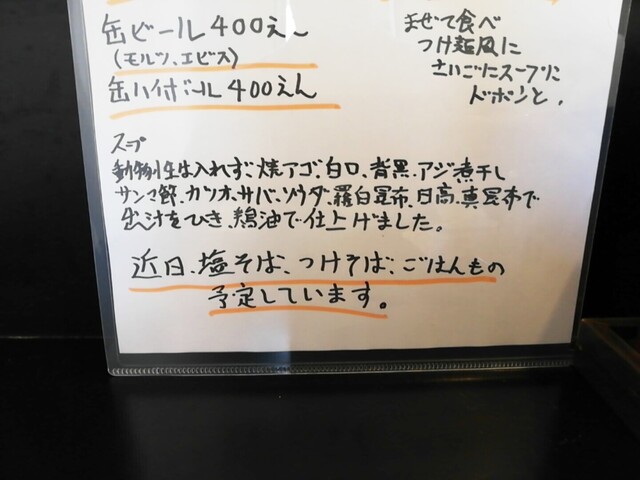 缶ビール400えん
(モルツ、エビス)
缶ハイボール400えん
まぜて食べ
つけ麺風に
さいごにスープに
ドボンと。
スープ
動物性は入れず、焼アゴ、白口、背黒、アジ煮干し
サンマ節、カツオ、サバ、ソウダ、羅臼昆布、日高、真昆布で
出汁をひき、鶏油で仕上げました。
近日、塩そば、つけそば、ごはんもの
予定しています。